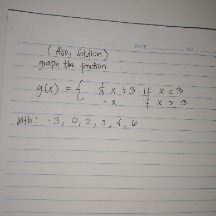 DATE
( Also, solution)
graph the function
g(x) = { 1/3 x + 3 if x ≤ 3
-x if x > 3
with: -3, 0, 2, 3, 4, 6